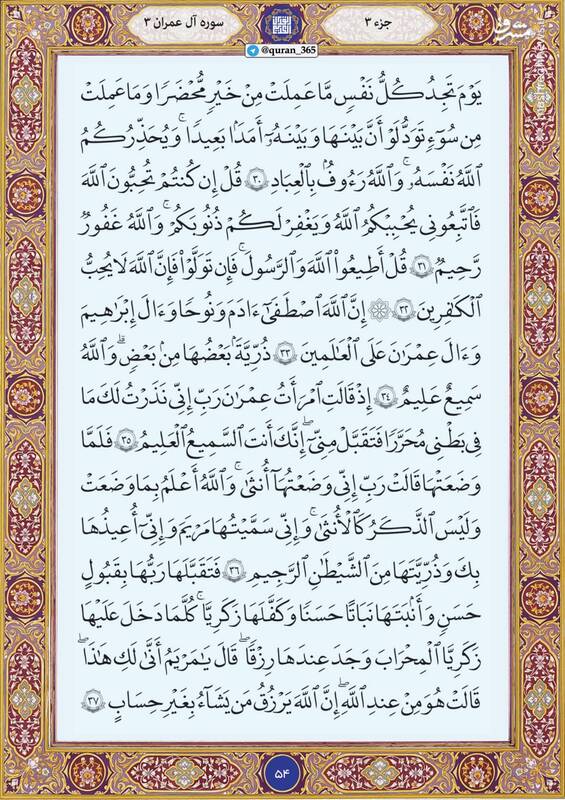 جزء ۳
سوره آل عمران ۳
مشرق
@quran_365
يَوْمَ تَجِدُ كُلُّ نَفْسٍ مَّا عَمِلَتْ مِنْ خَيْرٍ مُّحْضَرًا وَمَا عَمِلَتْ
مِن سُوٓءٍ تَوَدُّ لَوْ أَنَّ بَيْنَهَا وَبَيْنَهُۥٓ أَمَدَۢا بَعِيدًاۗ وَيُحَذِّرُكُمُ
ٱللَّهُ نَفْسَهُۥۗ وَٱللَّهُ رَءُوفُۢ بِٱلْعِبَادِ ٣٠ قُلْ إِن كُنتُمْ تُحِبُّونَ ٱللَّهَ
فَٱتَّبِعُونِى يُحْبِبْكُمُ ٱللَّهُ وَيَغْفِرْ لَكُمْ ذُنُوبَكُمْۗ وَٱللَّهُ غَفُورٌ
رَّحِيمٌ ٣١ قُلْ أَطِيعُوا۟ ٱللَّهَ وَٱلرَّسُولَۖ فَإِن تَوَلَّوْا۟ فَإِنَّ ٱللَّهَ لَا يُحِبُّ
ٱلْكَٰفِرِينَ ٣٢ ۞ إِنَّ ٱللَّهَ ٱصْطَفَىٰٓ ءَادَمَ وَنُوحًا وَءَالَ إِبْرَٰهِيمَ
وَءَالَ عِمْرَٰنَ عَلَى ٱلْعَٰلَمِينَ ٣٣ ذُرِّيَّةَۢ بَعْضُهَا مِنۢ بَعْضٍۗ وَٱللَّهُ
سَمِيعٌ عَلِيمٌ ٣٤ إِذْ قَالَتِ ٱمْرَأَتُ عِمْرَٰنَ رَبِّ إِنِّى نَذَرْتُ لَكَ مَا
فِى بَطْنِى مُحَرَّرًا فَتَقَبَّلْ مِنِّىٓۖ إِنَّكَ أَنتَ ٱلسَّمِيعُ ٱلْعَلِيمُ ٣٥ فَلَمَّا
وَضَعَتْهَا قَالَتْ رَبِّ إِنِّى وَضَعْتُهَآ أُنثَىٰ وَٱللَّهُ أَعْلَمُ بِمَا وَضَعَتْ
وَلَيْسَ ٱلذَّكَرُ كَٱلْأُنثَىٰۖ وَإِنِّى سَمَّيْتُهَا مَرْيَمَ وَإِنِّىٓ أُعِيذُهَا
بِكَ وَذُرِّيَّتَهَا مِنَ ٱلشَّيْطَٰنِ ٱلرَّجِيمِ ٣٦ فَتَقَبَّلَهَا رَبُّهَا بِقَبُولٍ
حَسَنٍ وَأَنۢبَتَهَا نَبَاتًا حَسَنًا وَكَفَّلَهَا زَكَرِيَّاۖ كُلَّمَا دَخَلَ عَلَيْهَا
زَكَرِيَّا ٱلْمِحْرَابَ وَجَدَ عِندَهَا رِزْقًاۖ قَالَ يَٰمَرْيَمُ أَنَّىٰ لَكِ هَٰذَاۖ
قَالَتْ هُوَ مِنْ عِندِ ٱللَّهِۖ إِنَّ ٱللَّهَ يَرْزُقُ مَن يَشَآءُ بِغَيْرِ حِسَابٍ ٣٧
۵۴